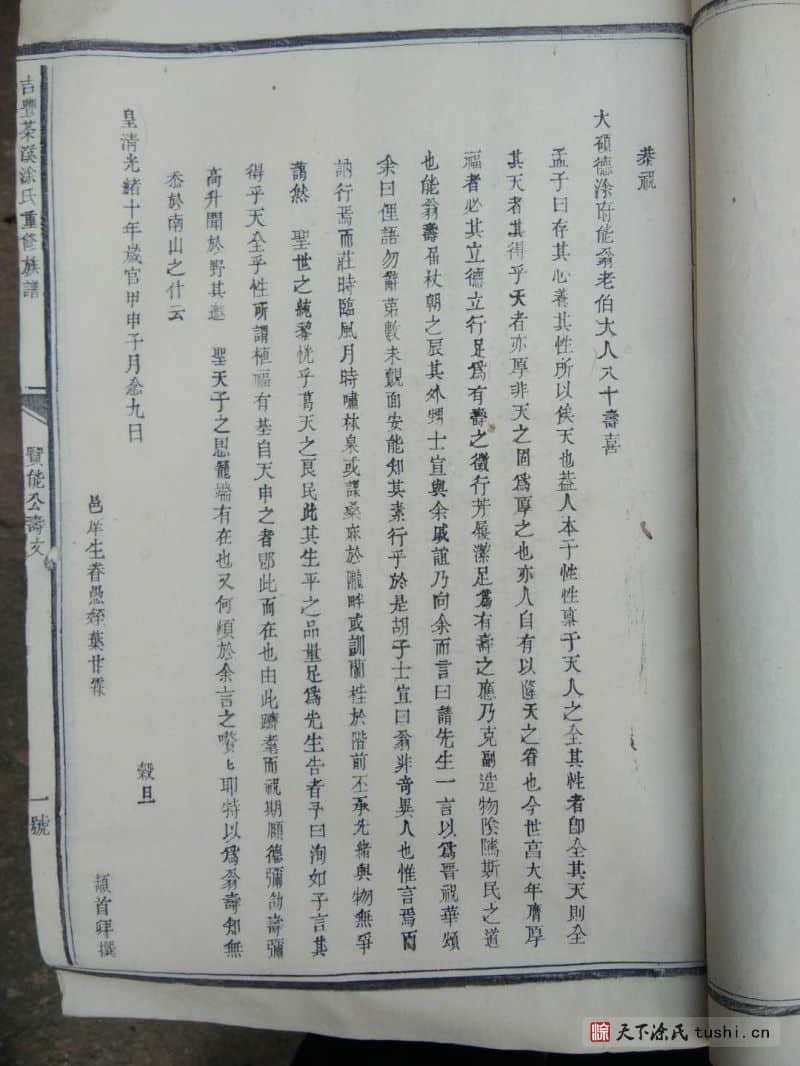 恭祝
大碩德涂府能翁老伯大人八十壽喜
孟子曰存其心養其性所以俟天也蓋人本于性性稟于天人之全其性者卽全其天則全
其天者其得乎天者亦厚非天之固爲厚之也亦人自有以篴天之眷也今世富大年膺厚
福者必其立德立行足爲有壽之徵行芳履潔足爲有壽之應乃克副造物陰隲斯民之道
也能翁壽屆杖朝之辰其外甥士宜與余戚誼乃向余而言曰請先生一言以爲晋祝華頌
余曰俚語勿辭第數未覿面安能知其素行乎於是胡子士宜曰翁非奇異人也惟言焉而
訥行焉而莊時臨風月時嘯林泉或課桑麻於隴畔或訓蘭桂於階前丕承先緒與物無爭
藹然 聖世之純黎恍乎葛天之良民此其生平之品量足爲先生告者予曰洵如子言其
得乎天全乎性所謂植福有基自天申之者卽此而在也由此躋耄而祝期頤德彌劭壽彌
高升聞於野其邀 聖天子之恩寵端有在也又何煩於余言之贅乚耶特以爲翁壽知無
忝於南山之什云
皇清光緒十年歲官甲申子月念九日
穀旦
邑庠生眷愚姪葉甘霖
頓首拜撰
吉豐茶溪涂氏重修族譜
賢能公壽文
一號
涂 天下涂氏 tushi.cn